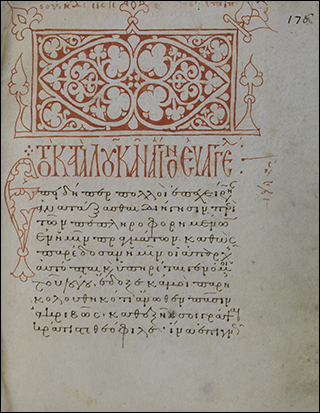 176
ΤΟ ΚΑΤΑ ΛΟΥΚΑΝ ΑΓΙΟΝ ΕΥΑΓΓΕΛ
ἐπειδήπερ πολλοὶ ἐπεχείρησ
ἀνατάξασθαι διήγησιν περὶ
τῶν πεπληροφορημένων
ἐν ἡμῖν πραγμάτων. καθὼς
παρέδοσαν ἡμῖν οἱ ἀπαρχῆς
αὐτόπται καὶ ὑπηρέται γενόμ
τοῦ λόγου, ἔδοξε κἀμοὶ παρη
κολουθηκότι ἄνωθεν πᾶσιν
ἀκριβῶς. καθεξῆς σοι γράψαι
κράτιστε θεόφιλε. ἵνα ἐπιγν